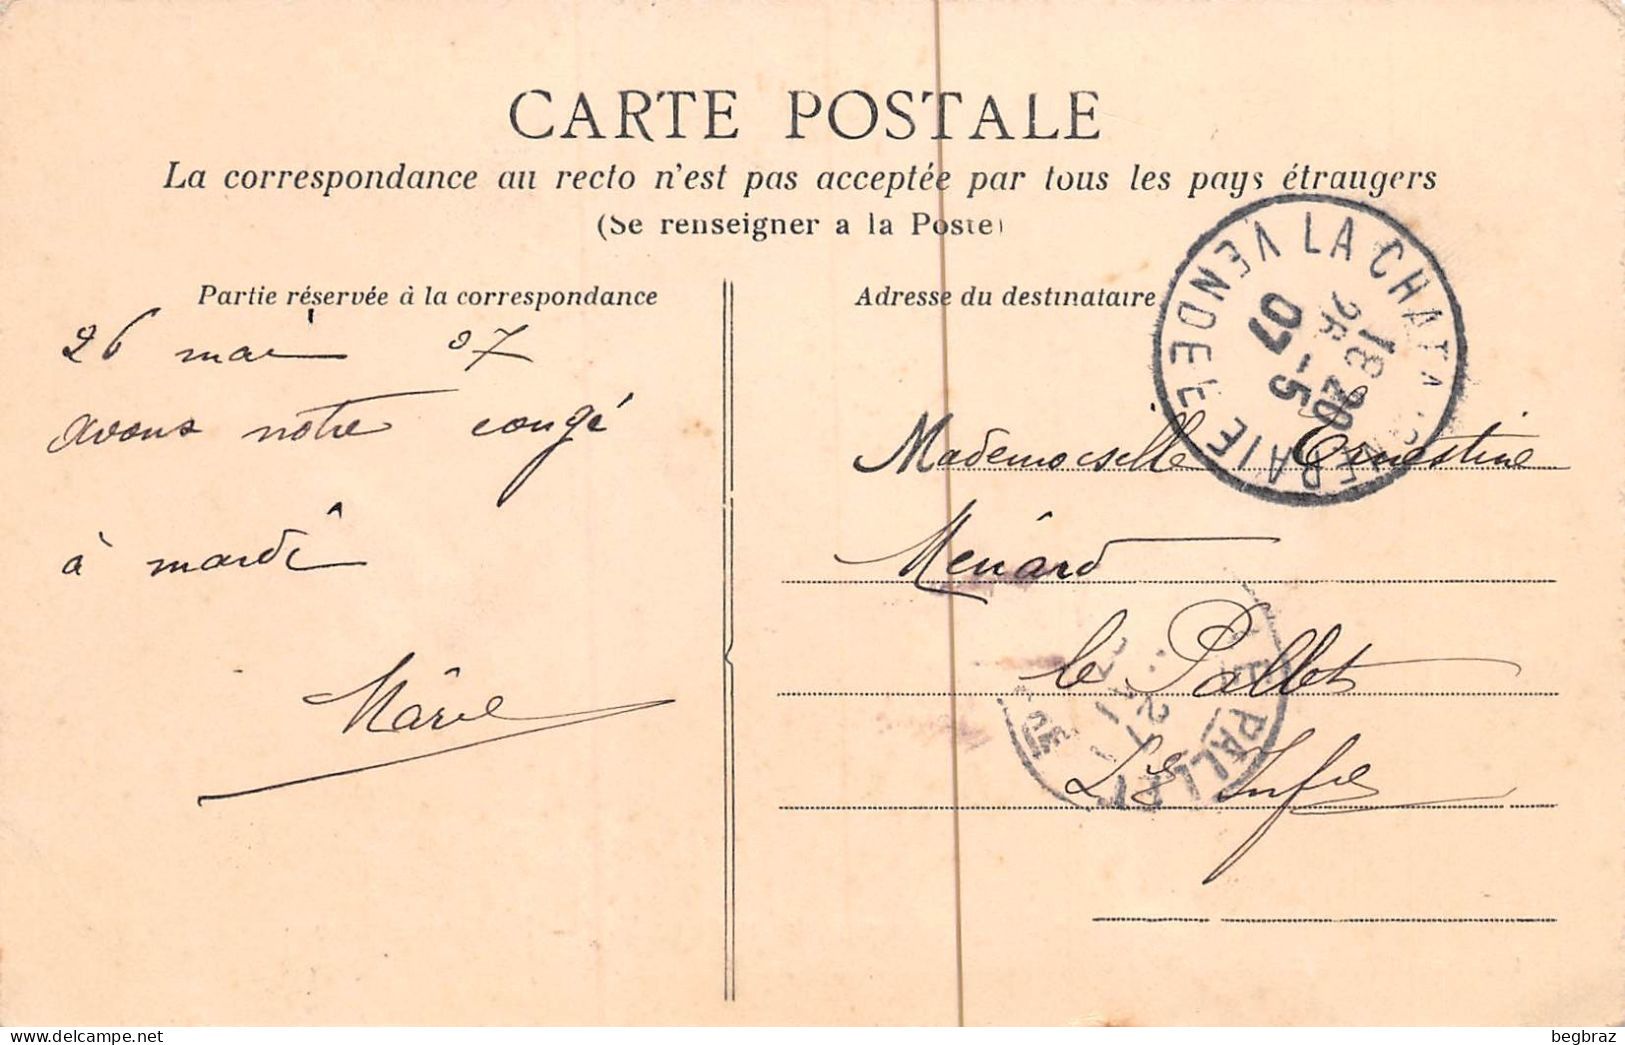 CARTE POSTALE
La correspondance au recto n'est pas acceptée par tous les pays étrangers
(Se renseigner a la Poste)
Partie réservée à la correspondance
26 mai 07
avons notre congé
à mardi
Marie
Adresse du destinataire
Mademoiselle Ernestine
Menard
le Pallet
Lre Infre
LA CHATAIGNERAIE VENDEE
18 30
26 - 5
07
PALLET
27
begbraz